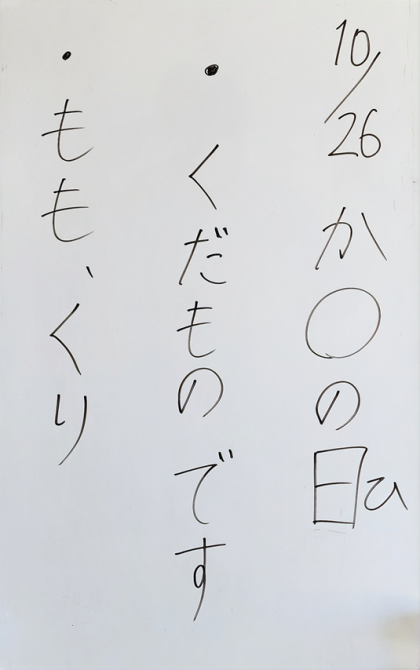 10/26 か○の日ひ
・くだものです
・もも、くり